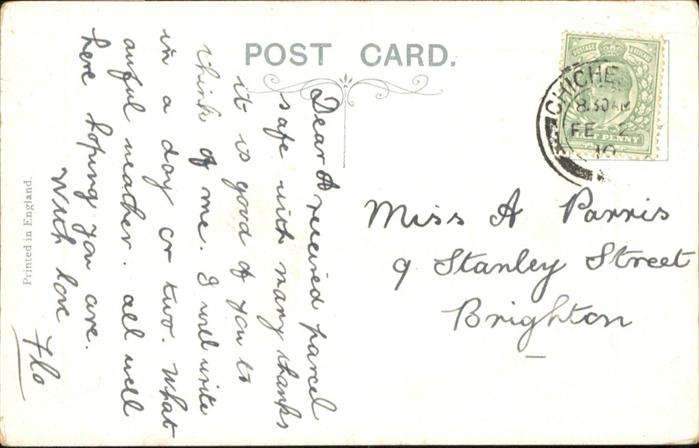 POST CARD.
CHICHE
8.30 AM
FE 2
10
HALFPENNY
Dear A received parcel
safe with many thanks
it is good of you to
think of me. I will write
in a day or two. What
awful weather. all well
here hoping you are.
With love
Flo
Miss A Parris
9 Stanley Street
Brighton
Printed in England.